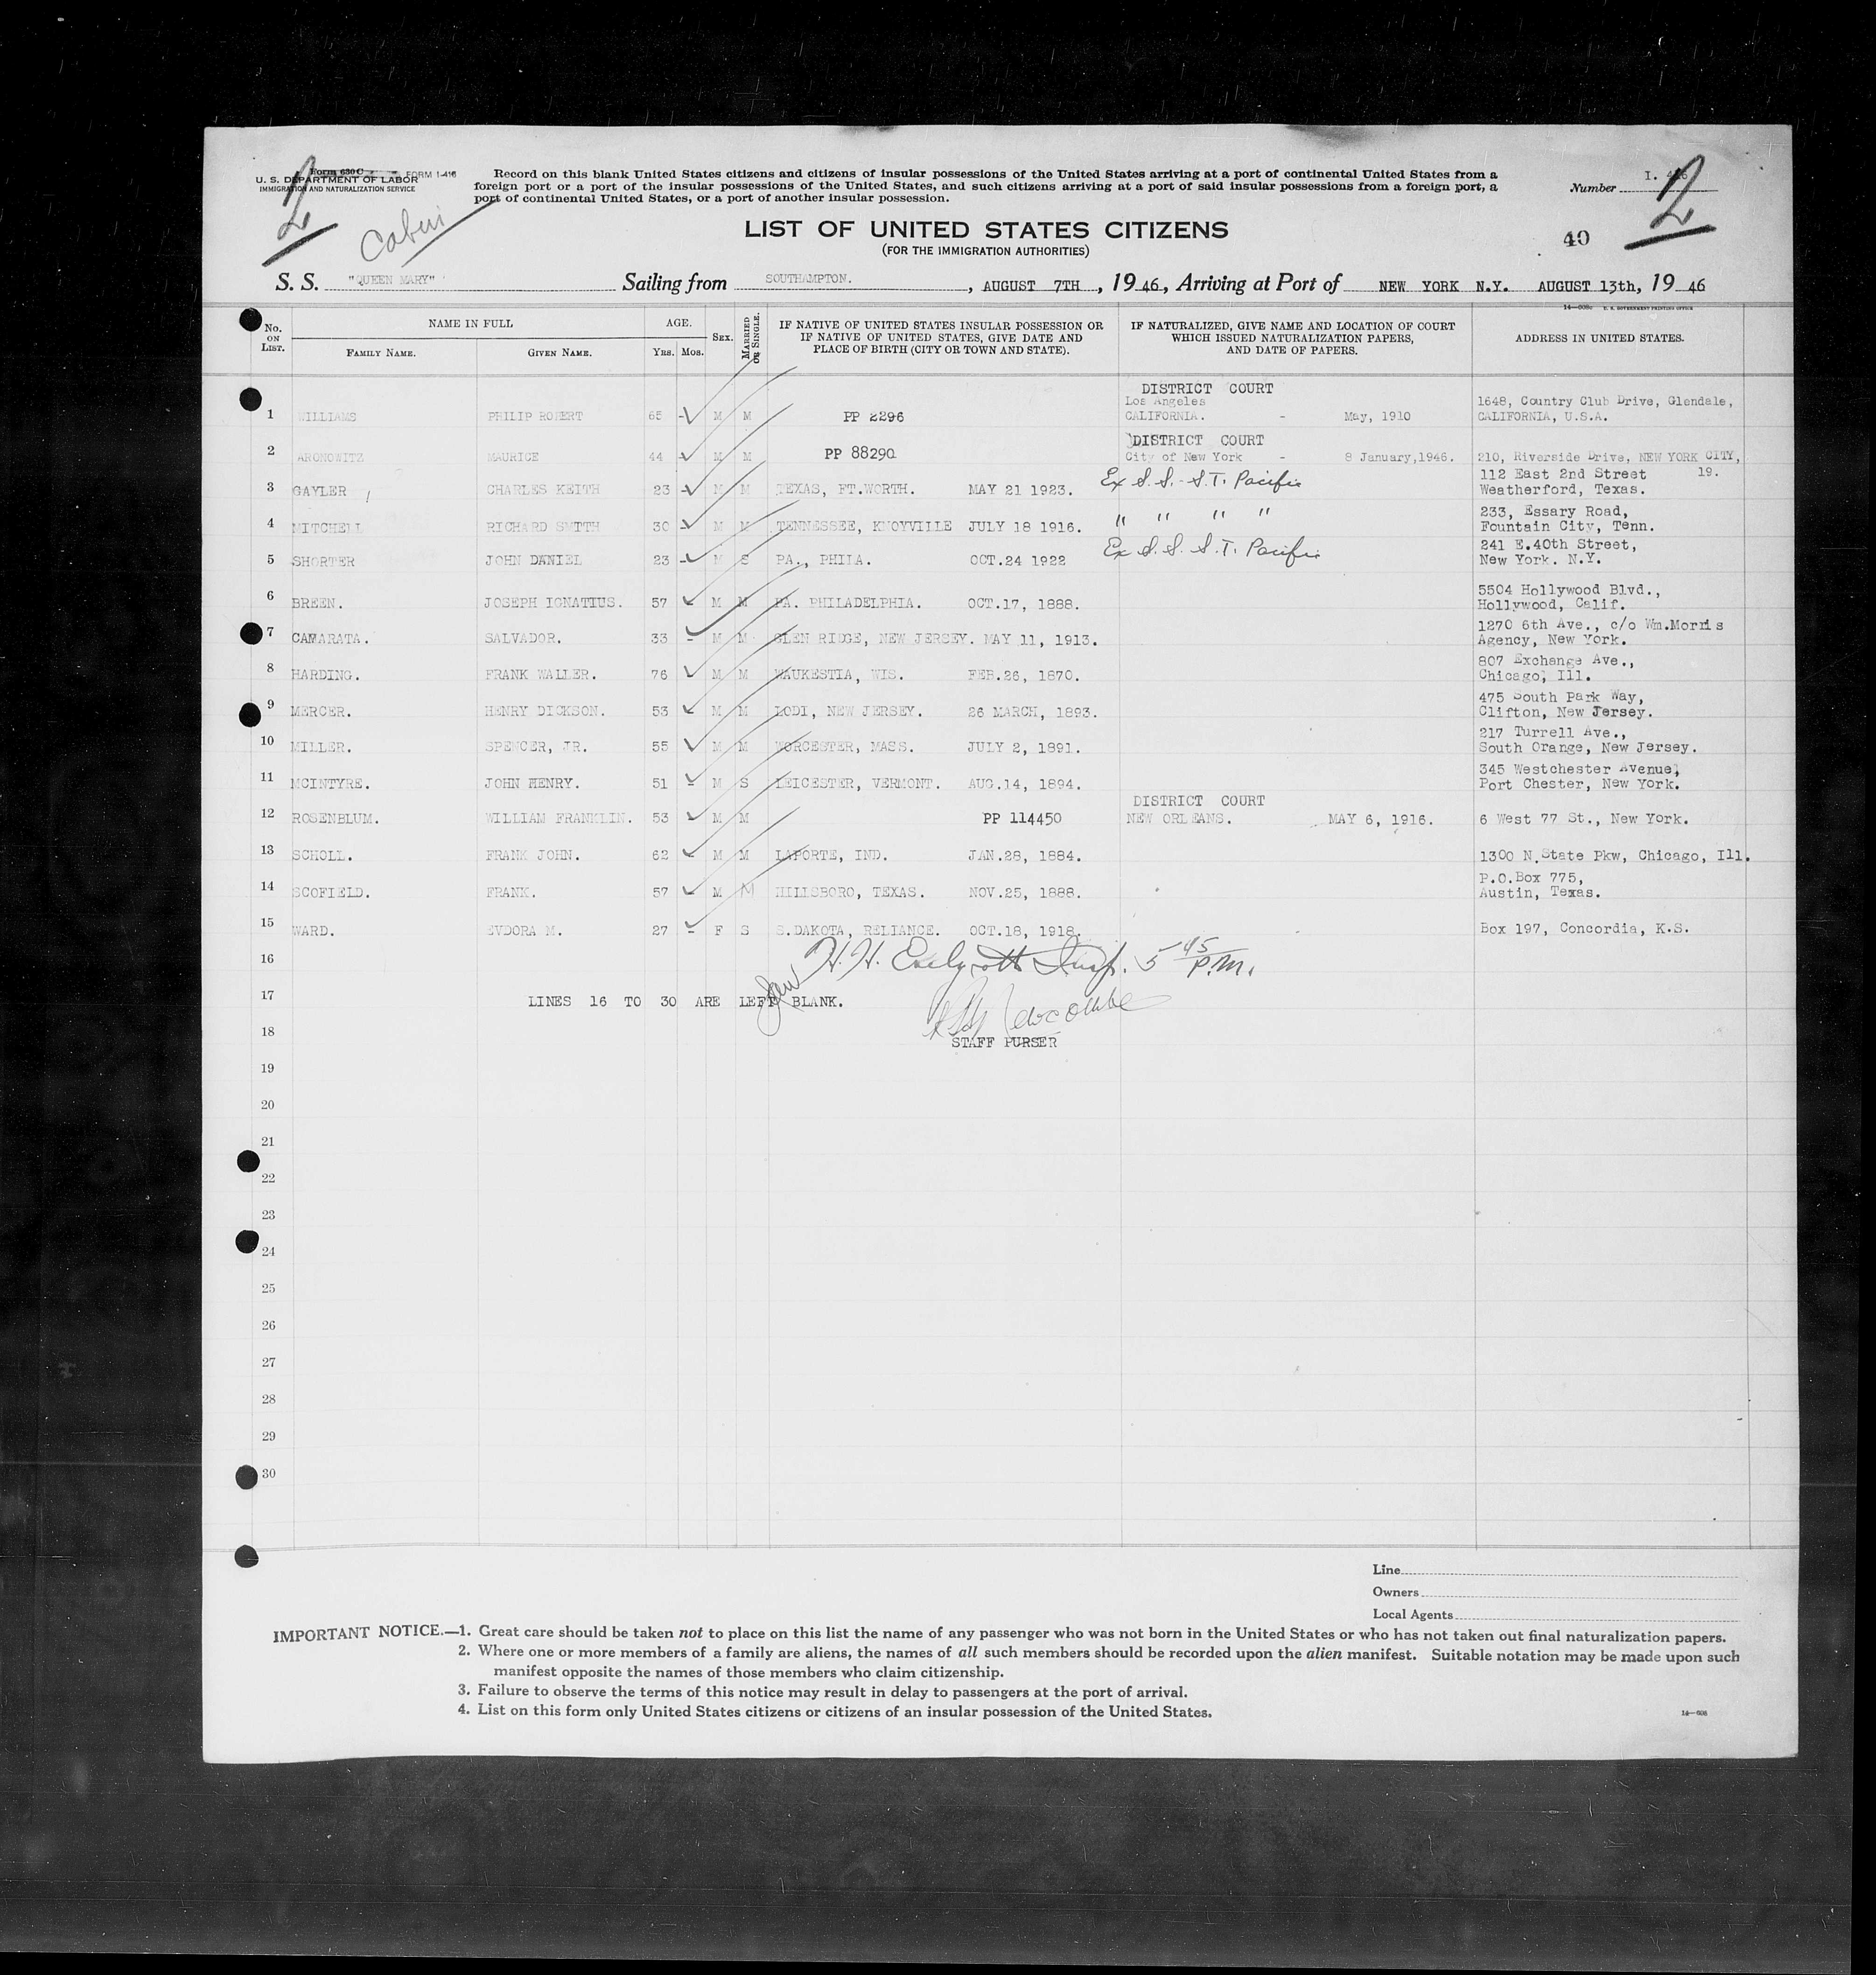 2
Form 630 C FORM I-416
U. S. DEPARTMENT OF LABOR
IMMIGRATION AND NATURALIZATION SERVICE
Cabin
Record on this blank United States citizens and citizens of insular possessions of the United States arriving at a port of continental United States from a
foreign port or a port of the insular possessions of the United States, and such citizens arriving at a port of said insular possessions from a foreign port, a
port of continental United States, or a port of another insular possession.
Number I.
2
40
LIST OF UNITED STATES CITIZENS
(FOR THE IMMIGRATION AUTHORITIES)
S. S. "QUEEN MARY" Sailing from SOUTHAMPTON. , AUGUST 7TH , 19 46, Arriving at Port of NEW YORK N.Y. AUGUST 13th, 19 46
No. ON LIST. NAME IN FULL FAMILY NAME. GIVEN NAME. AGE. YRS. MOS. SEX. MARRIED OR SINGLE. IF NATIVE OF UNITED STATES INSULAR POSSESSION OR IF NATIVE OF UNITED STATES, GIVE DATE AND PLACE OF BIRTH (CITY OR TOWN AND STATE). IF NATURALIZED, GIVE NAME AND LOCATION OF COURT WHICH ISSUED NATURALIZATION PAPERS, AND DATE OF PAPERS. ADDRESS IN UNITED STATES.
DISTRICT COURT
Los Angeles 1648, Country Club Drive, Glendale,
1 WILLIAMS PHILIP ROBERT 65 - M M PP 2296 CALIFORNIA. - May, 1910 CALIFORNIA, U.S.A.
DISTRICT COURT
2 ARONOWITZ MAURICE 44 - M M PP 88290 City of New York - 8 January,1946. 210, Riverside Drive, NEW YORK CITY,
112 East 2nd Street 19.
3 GAYLER CHARLES KEITH 23 - M M TEXAS, FT.WORTH. MAY 21 1923. Ex S.S. S.T. Pacific Weatherford, Texas.
233, Essary Road,
4 MITCHELL RICHARD SMITH 30 - M M TENNESSEE, KNOYVILLE JULY 18 1916. " " " " Fountain City, Tenn.
241 E.40th Street,
5 SHORTER JOHN DANIEL 23 - M S PA., PHILA. OCT.24 1922 Ex S.S. S.T. Pacific New York. N.Y.
5504 Hollywood Blvd.,
6 BREEN. JOSEPH IGNATIUS. 57 - M M PA. PHILADELPHIA. OCT.17, 1888. Hollywood, Calif.
1270 6th Ave., c/o Wm.Morris
7 CAMARATA. SALVADOR. 33 - M M GLEN RIDGE, NEW JERSEY. MAY 11, 1913. Agency, New York.
807 Exchange Ave.,
8 HARDING. FRANK WALLER. 76 M M WAUKESTIA, WIS. FEB.26, 1870. Chicago, Ill.
475 South Park Way,
9 MERCER. HENRY DICKSON. 53 - M M LODI, NEW JERSEY. 26 MARCH, 1893. Clifton, New Jersey.
217 Turrell Ave.,
10 MILLER. SPENCER, JR. 55 M M WORCESTER, MASS. JULY 2, 1891. South Orange, New Jersey.
345 Westchester Avenue,
11 MCINTYRE. JOHN HENRY. 51 - M S LEICESTER, VERMONT. AUG.14, 1894. Port Chester, New York.
DISTRICT COURT
12 ROSENBLUM. WILLIAM FRANKLIN. 53 - M M PP 114450 NEW ORLEANS. MAY 6, 1916. 6 West 77 St., New York.
13 SCHOLL. FRANK JOHN. 62 - M M LAPORTE, IND. JAN.28, 1884. 1300 N.State Pkw, Chicago, Ill.
P.O.Box 775,
14 SCOFIELD. FRANK. 57 - M M HILLSBORO, TEXAS. NOV.25, 1888. Austin, Texas.
15 WARD. EVDORA M. 27 - F S S.DAKOTA, RELIANCE. OCT.18, 1918. Box 197, Concordia, K.S.
16 H.H. Insp. 5 45 P.M.
17 LINES 16 TO 30 ARE LEFT BLANK.
Newcombe
18 STAFF PURSER
19
20
21
22
23
24
25
26
27
28
29
30
Line
Owners
Local Agents
IMPORTANT NOTICE.—1. Great care should be taken not to place on this list the name of any passenger who was not born in the United States or who has not taken out final naturalization papers.
2. Where one or more members of a family are aliens, the names of all such members should be recorded upon the alien manifest. Suitable notation may be made upon such
manifest opposite the names of those members who claim citizenship.
3. Failure to observe the terms of this notice may result in delay to passengers at the port of arrival.
4. List on this form only United States citizens or citizens of an insular possession of the United States.